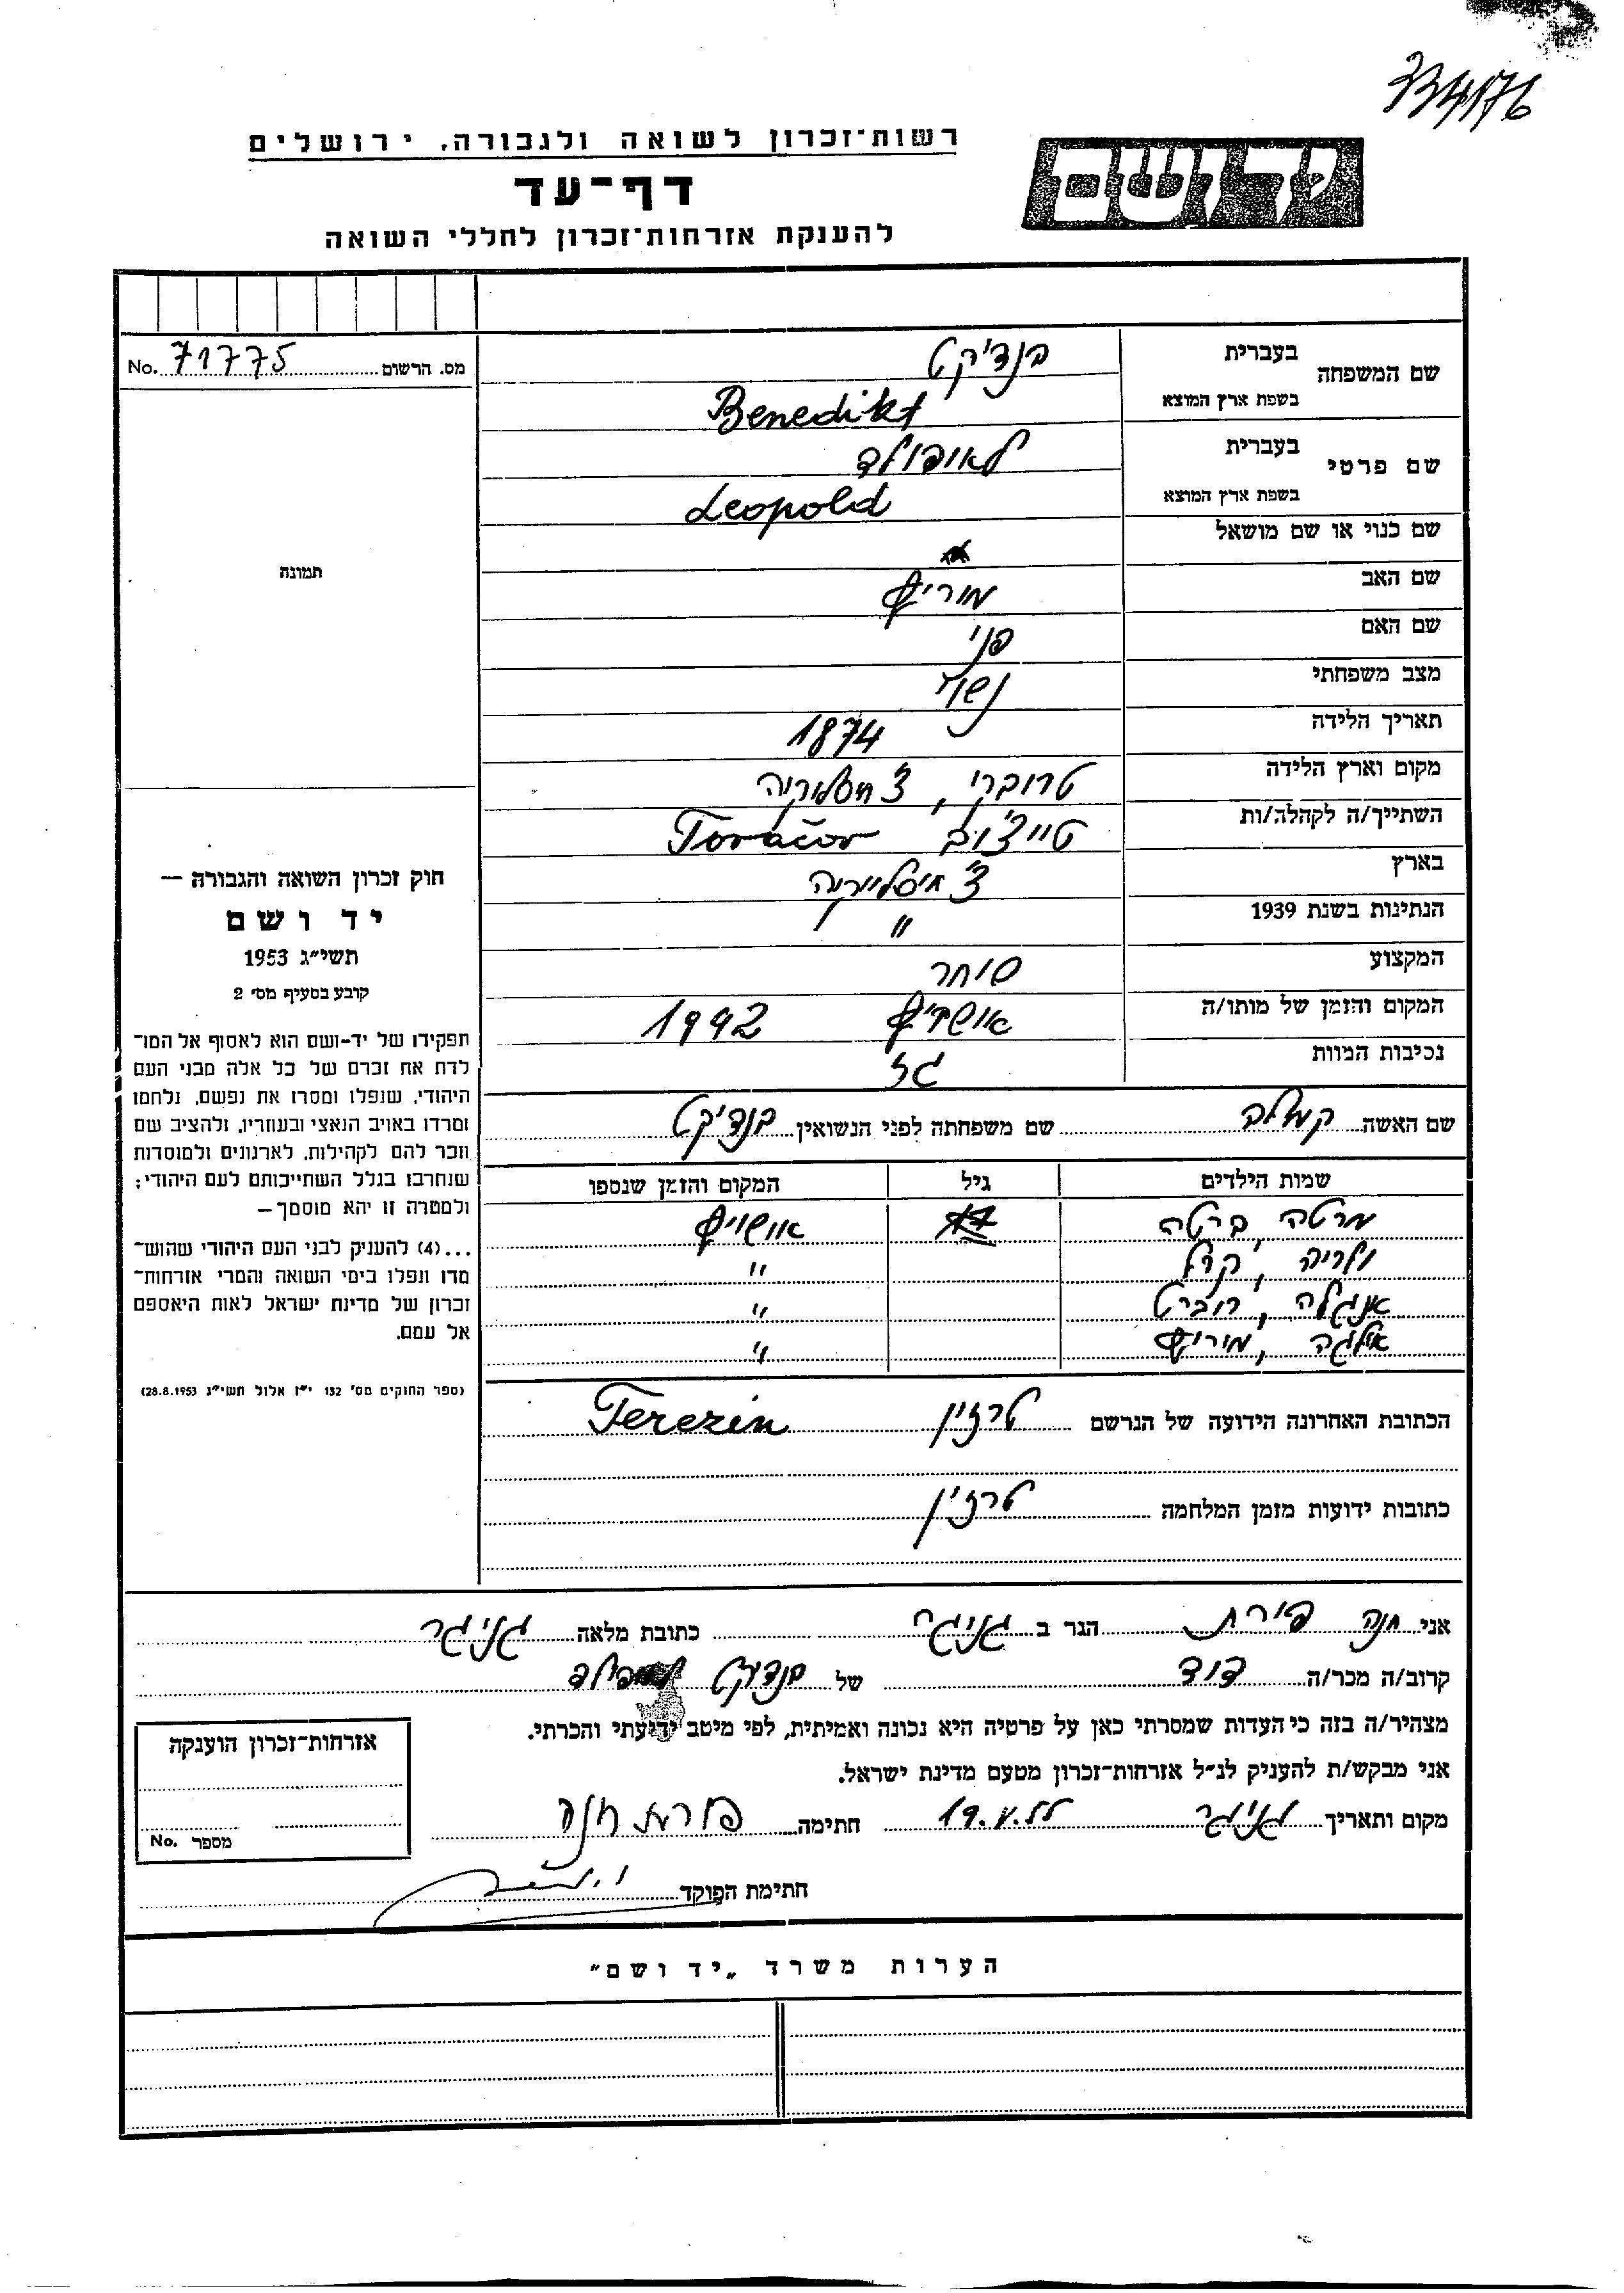 334/176
רשות־זכרון לשואה ולגבורה, ירושלים
יד ושם
דף־עד
להענקת אזרחות־זכרון לחללי השואה
מס. הרשום 71775 No.
שם המשפחה
בעברית בנדיקט
בשפת ארץ המוצא Benedikt
שם פרטי
בעברית לאופולד
בשפת ארץ המוצא Leopold
שם כנוי או שם מושאל
שם האב מוריץ
שם האם פני
מצב משפחתי נשוי
תאריך הלידה 1874
מקום וארץ הלידה טרוברי, צ'
השתייך/ה לקהלה/ות טוייצ'וב Tovačov
בארץ צ'
הנתינות בשנת 1939 "
המקצוע סוחר
המקום והזמן של מותו/ה אושויץ 1942
נסיבות המוות גז
שם האשה קמילה שם משפחתה לפני הנשואין בנדיקט
שמות הילדים גיל המקום והזמן שנספו
מרטה, ברטה אושויץ
ולריה, קרל "
אנגלה, רוברט "
אולגה, מוריץ "
הכתובת האחרונה הידועה של הנרשם טרזין Terezin
כתובות ידועות מזמן המלחמה טרזין
תמונה
חוק זכרון השואה והגבורה —
יד ושם
תשי״ג 1953
קובע בסעיף מס׳ 2
תפקידו של יד־ושם הוא לאסוף אל המו־
לדת את זכרם של כל אלה מבני העם
היהודי, שנפלו ומסרו את נפשם, נלחמו
ומרדו באויב הנאצי ובעוזריו, ולהציב שם
וזכר להם לקהילות, לארגונים ולמוסדות
שנחרבו בגלל השתייכותם לעם היהודי;
ולמטרה זו יהא מוסמך —
...(4) להעניק לבני העם היהודי שהוש־
מדו ונפלו בימי השואה והמרי אזרחות־
זכרון של מדינת ישראל לאות היאספם
אל עמם.
(ספר החוקים מס׳ 132 י״ז אלול תשי״ג 28.8.1953)
אני חנה פורת הגר ב גניגר כתובת מלאה גניגר
קרוב/ה מכר/ה דוד של בנדיקט
מצהיר/ה בזה כי העדות שמסרתי כאן על פרטיה היא נכונה ואמיתית, לפי מיטב ידיעתי והכרתי.
אני מבקש/ת להעניק לנ״ל אזרחות־זכרון מטעם מדינת ישראל.
מקום ותאריך גניגר 19.V.55 חתימה פורת חנה
חתימת הפוקד
אזרחות־זכרון הוענקה
מספר No.
הערות משרד „יד ושם״